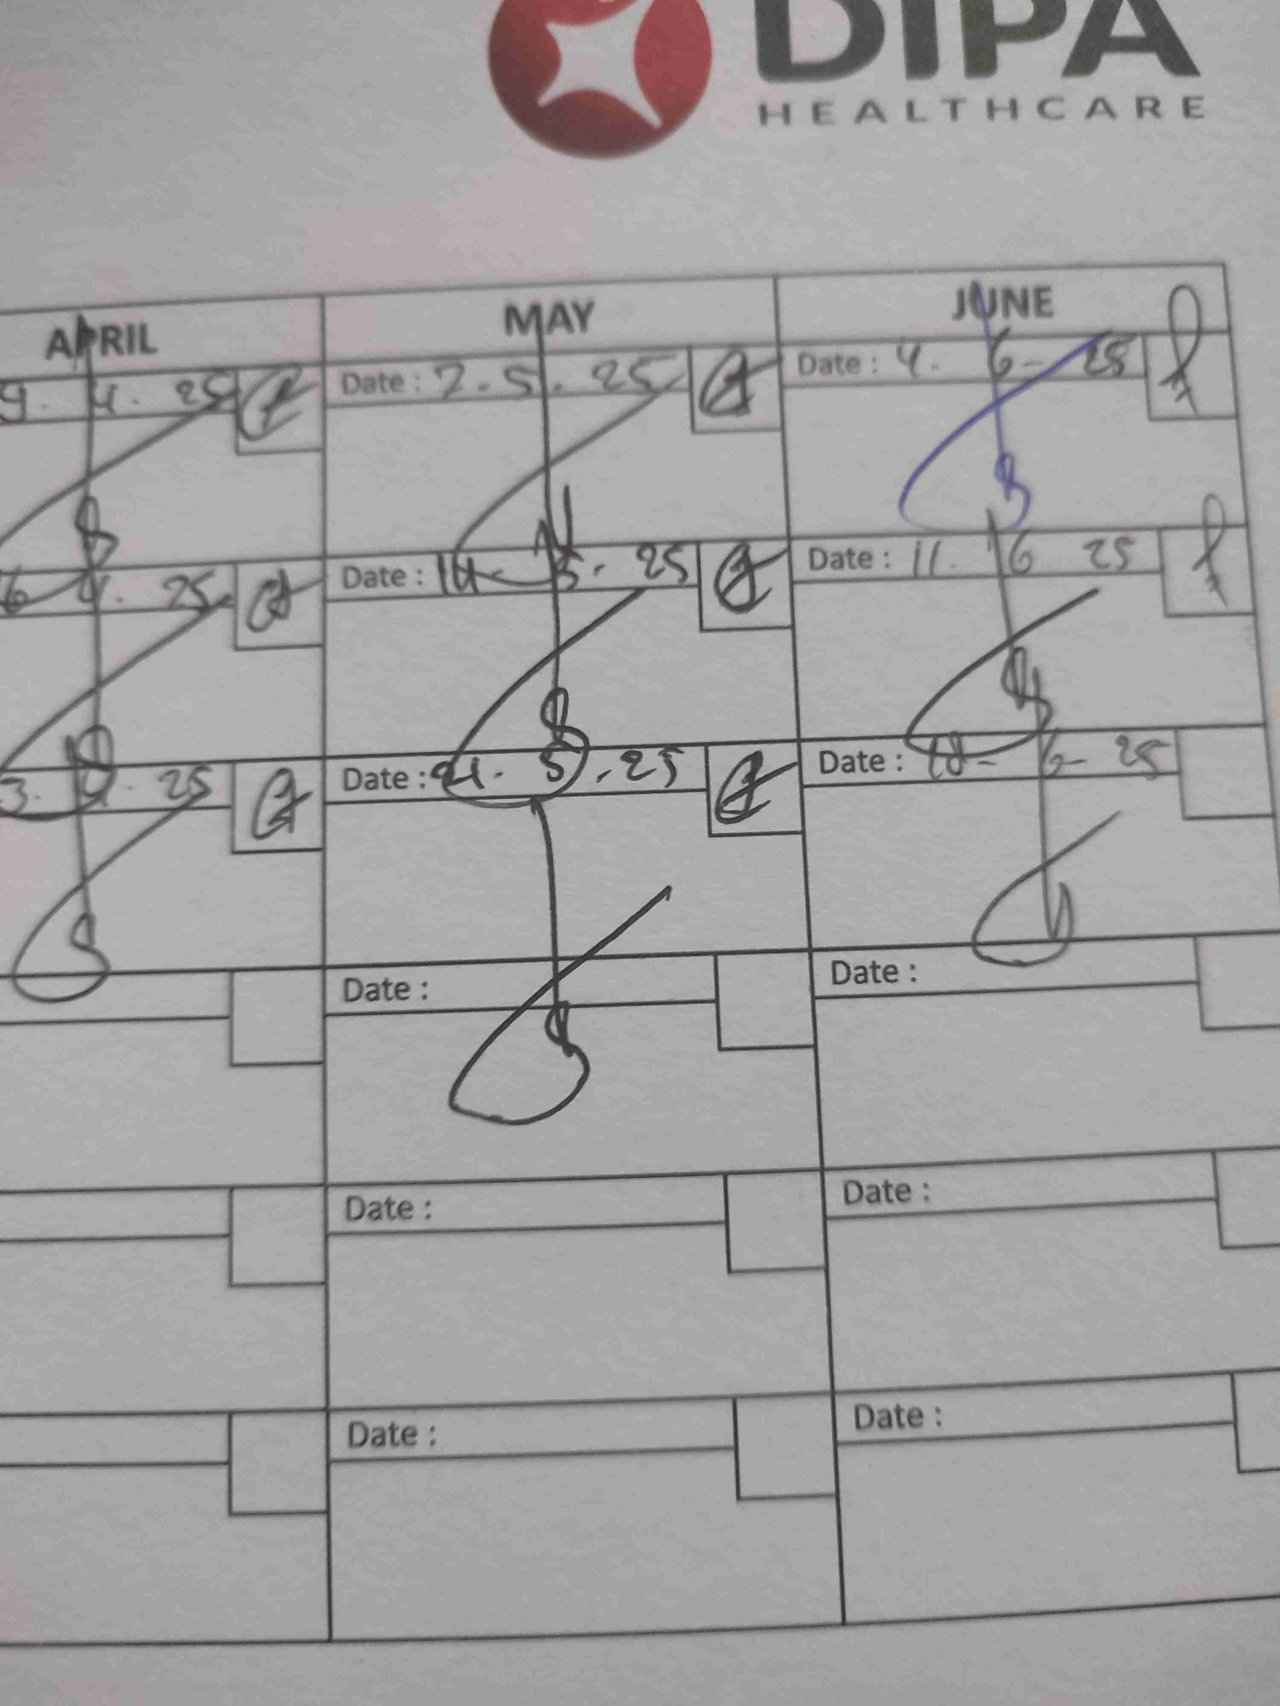 DIPA
HEALTHCARE
APRIL MAY JUNE
9. 4. 25 Date : 7. 5. 25 Date : 4. 6- 25
6 4. 25 Date : 14 5. 25 Date : 11. 6 25
3. 4. 25 Date : 21. 5. 25 Date : 18- 6- 25
Date : Date :
Date : Date :
Date : Date :